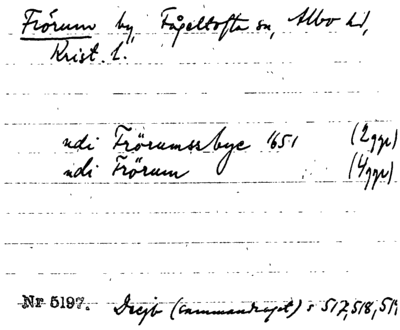 Frörum by, Fågeltofta sn, Albo hd,
Krist. l.
udi Frörumssbye 1651 (2 ggr)
udi Frörum (4 ggr)
Nr 5197. Dsejb (sammandraget) s 517, 518, 519